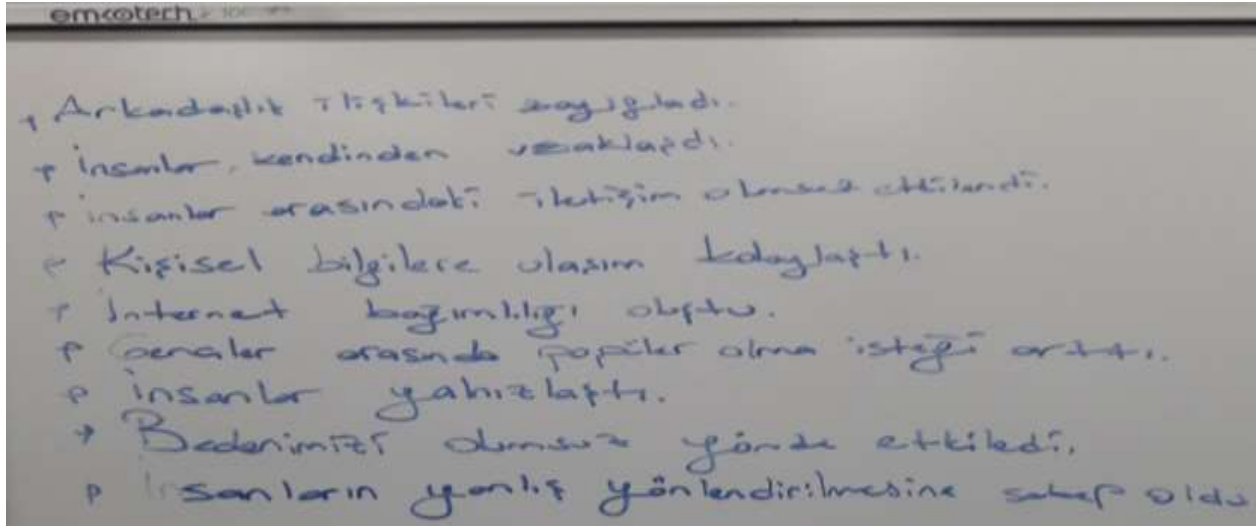 emcotech
Arkadaşlık ilişkileri zayıfladı.
İnsanlar, kendinden uzaklaşdı.
insanlar arasındaki iletişim olumsuz etkilendi.
Kişisel bilgilere ulaşım kolaylaştı.
İnternet bağımlılığı oluştu.
Gençler arasında popüler olma isteği arttı.
İnsanlar yalnızlaştı.
→ Bedenimizi olumsuz yönde etkiledi.
İnsanların yanlış yönlendirilmesine sebep oldu